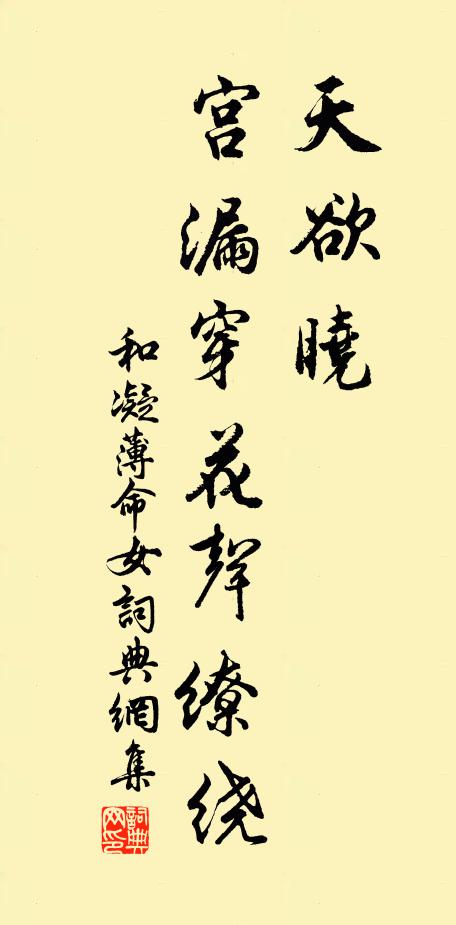 天欲曉
宫漏穿花聲繚绕
和凝薄命女詞典網集
詞典网印